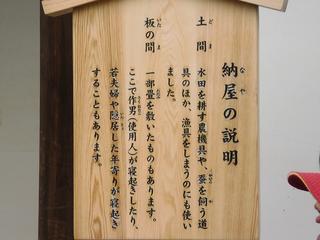 納屋の説明
なや
土間
どま
水田を耕す農機具や、蚕を飼う道
具のほか、漁具をしまうのにも使い
ました。
板の間
いたま
一部畳を敷いたものもあります。
ここで作男(使用人)が寝起きしたり、
若夫婦や隠居した年寄りが寝起き
することもあります。